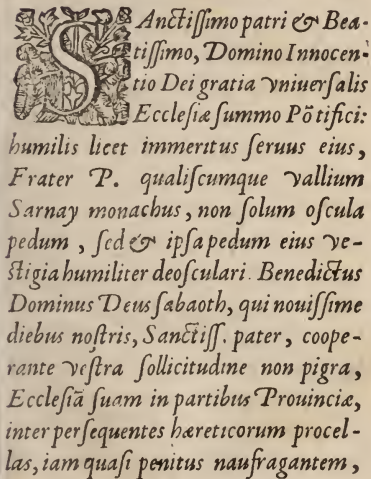 SAnctißimo patri & Bea-
tißimo, Domino Innocen-
tio Dei gratia vniuersalis
Ecclesiæ summo Põtifici:
humilis licet immeritus seruus eius,
Frater P. qualiscumque vallium
Sarnay monachus, non solum oscula
pedum, sed & ipsa pedum eius ve-
stigia humiliter deosculari. Benedictus
Dominus Deus sabaoth, qui nouissime
diebus nostris, Sanctiss. pater, coope-
rante vestra sollicitudine non pigra,
Ecclesiã suam in partibus Prouinciæ,
inter persequentes hæreticorum procel-
las, iam quasi penitus naufragantem,